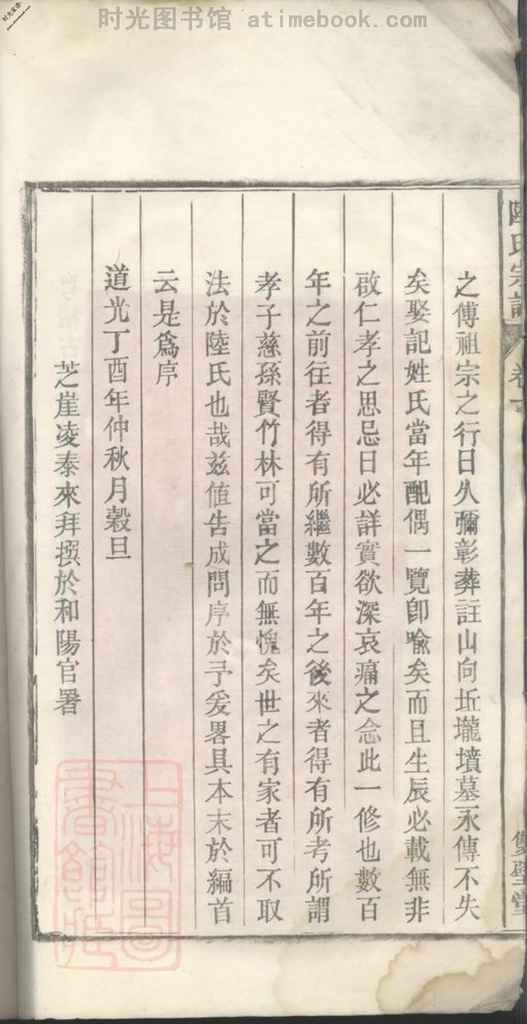 时光图书馆 atimebook.com
之傳祖宗之行日久彌彰葬註山向坵壠墳墓永傳不失
矣娶記姓氏當年配偶一覽卽喻矣而且生辰必載無非
啟仁孝之思忌日必詳實欲深哀痛之念此一修也數百
年之前往者得有所繼數百年之後來者得有所考所謂
孝子慈孫賢竹林可當之而無愧矣世之有家者可不取
法於陸氏也哉兹値告成問序於予爰畧具本末於編首
云是爲序
道光丁酉年仲秋月穀旦
芝崖凌泰來拜撰於和陽官署